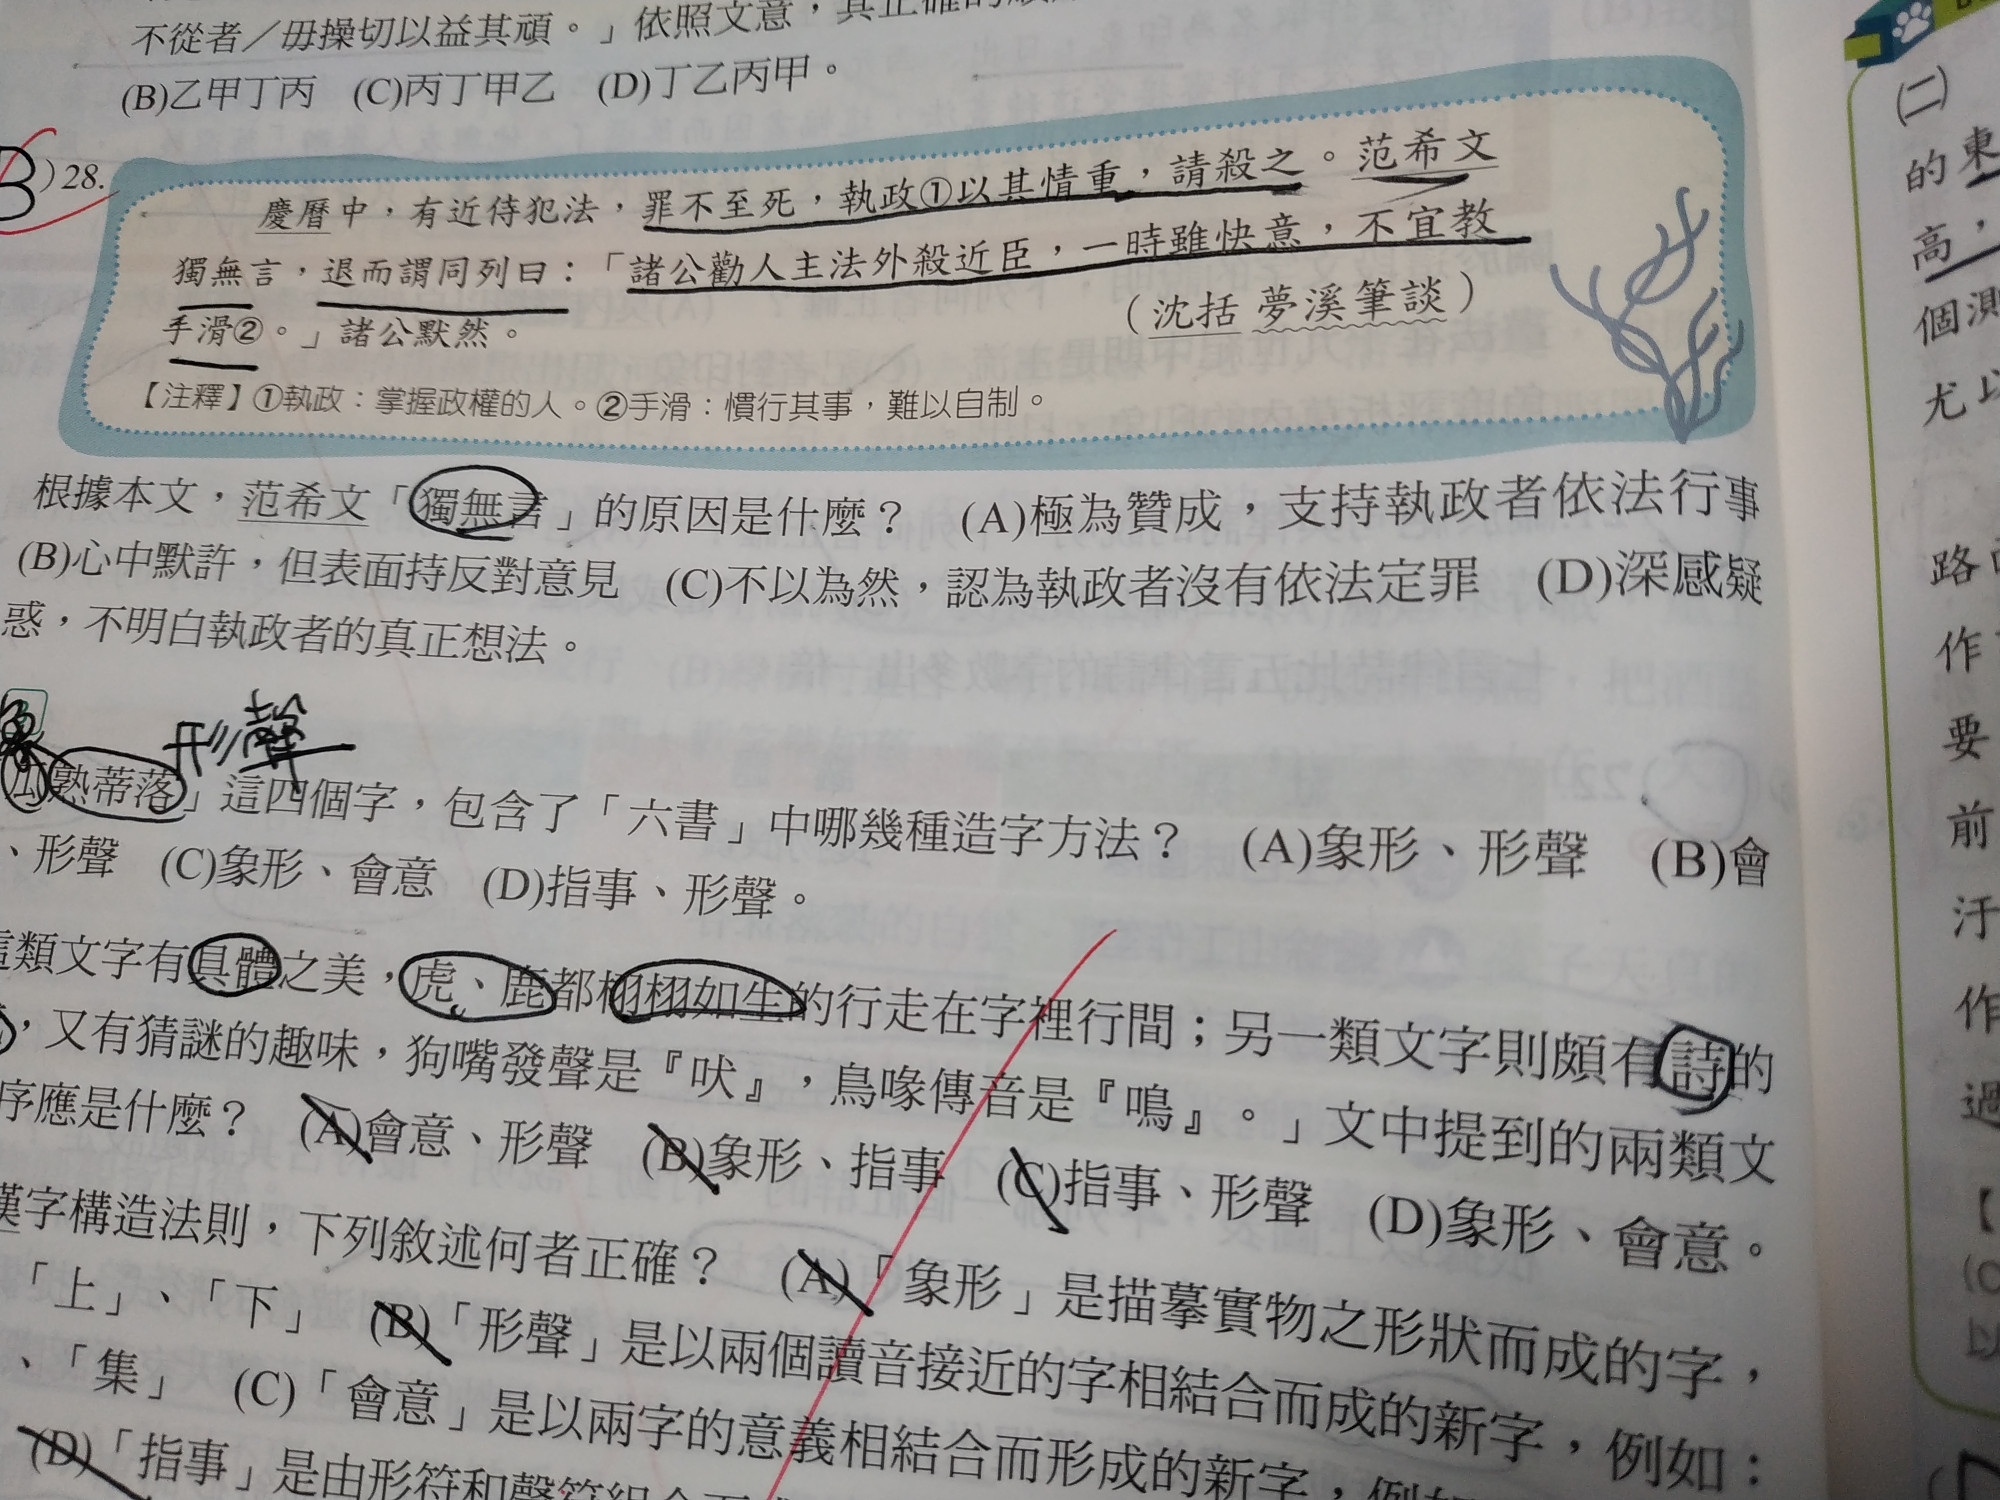 不從者／毋操切以益其頑。」依照文意，其正確的
(B)乙甲丁丙 (C)丙丁甲乙 (D)丁乙丙甲。
B)28.
慶曆中，有近侍犯法，罪不至死，執政①以其情重，請殺之。范希文
獨無言，退而謂同列曰：「諸公勸人主法外殺近臣，一時雖快意，不宜教
手滑②。」諸公默然。
（沈括 夢溪筆談）
【注釋】①執政：掌握政權的人。②手滑：慣行其事，難以自制。
根據本文，范希文「獨無言」的原因是什麼？ (A)極為贊成，支持執政者依法行事
(B)心中默許，但表面持反對意見 (C)不以為然，認為執政者沒有依法定罪 (D)深感疑
惑，不明白執政者的真正想法。
形聲
瓜熟蒂落」這四個字，包含了「六書」中哪幾種造字方法？ (A)象形、形聲 (B)會
、形聲 (C)象形、會意 (D)指事、形聲。
這類文字有具體之美，虎、鹿都栩栩如生的行走在字裡行間；另一類文字則頗有詩的
，又有猜謎的趣味，狗嘴發聲是『吠』，鳥喙傳音是『鳴』。」文中提到的兩類文
序應是什麼？ (A)會意、形聲 (B)象形、指事 (C)指事、形聲 (D)象形、會意。
漢字構造法則，下列敘述何者正確？ (A)「象形」是描摹實物之形狀而成的字，
「上」、「下」 (B)「形聲」是以兩個讀音接近的字相結合而成的新字，例如：
、「集」 (C)「會意」是以兩字的意義相結合而形成的新字，例如
(D)「指事」是由形符和聲符組合而成
(二)
的東
高，
個測
尤以
路
作
要
前
汙
作
過
【
(C
以